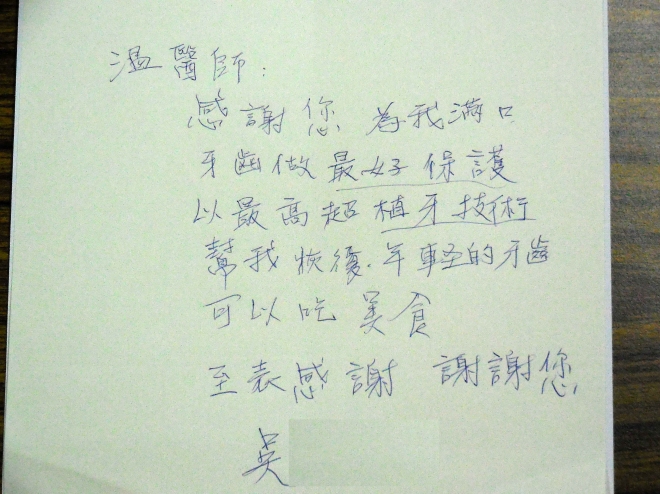 溫醫師：
感謝您 為我滿口
牙齒做最好保護
以最高超植牙技術
幫我恢復．年輕的牙齒
可以吃美食
至表感謝 謝謝您
吳